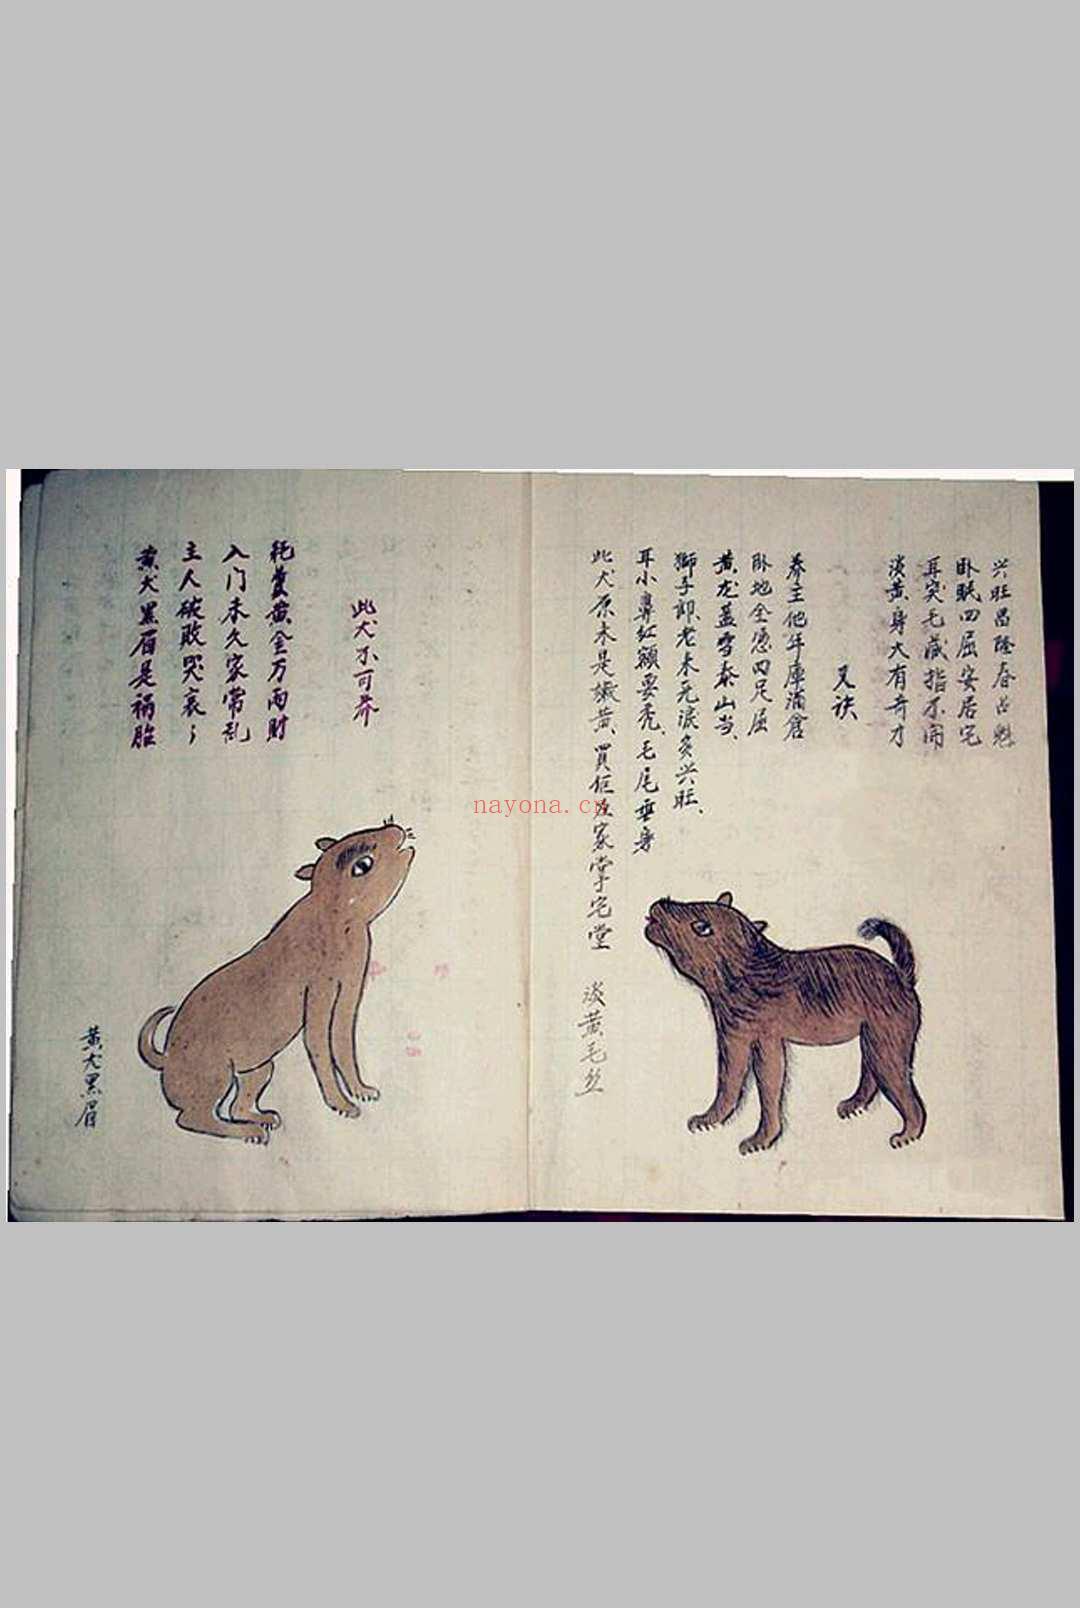 黄犬黑眉
黄犬黑眉是祸胎
主人破败哭哀〻
入门未久家常乱
耗费黄金万両財
此犬不可养
淡黄毛丝
此犬原来是嫩黄、買佢返家掌宅堂
耳小鼻红额要秃、毛尾垂身
獅子卸老未无淚多兴旺、
黄龙盖雪泰山当、
卧地全凭四足屈
养主他年庫满倉
又诀
淡黄身大有奇才
耳突毛藏指不開
卧眠四屈安居宅
兴旺昌隆春占魁
nayona.cn